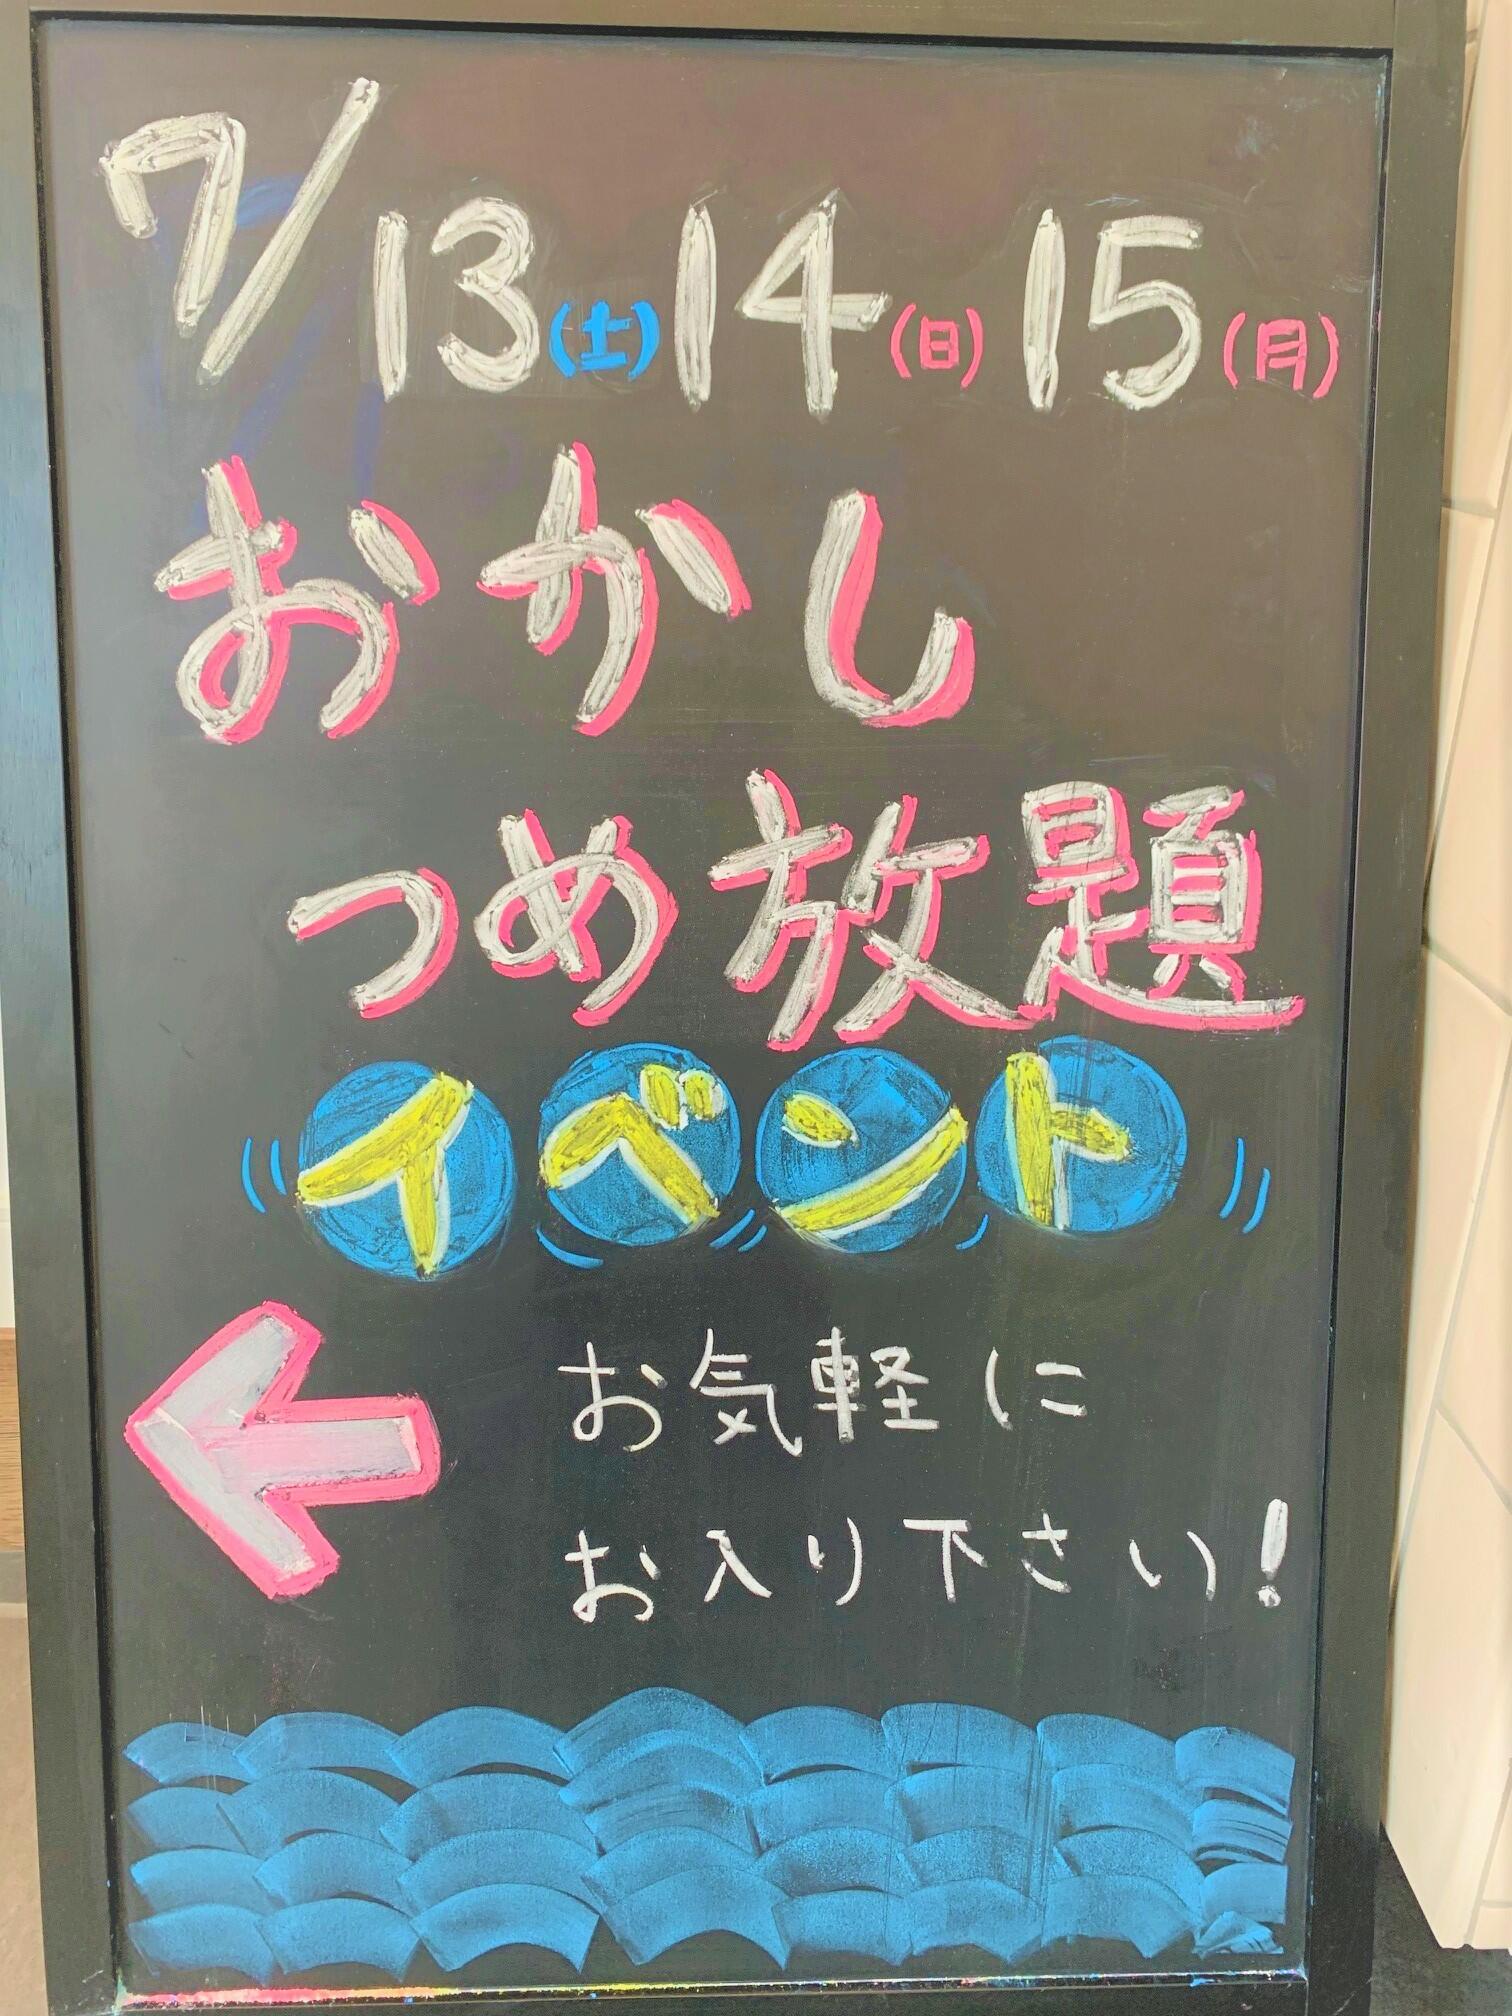 7/13(土)14(日)15(月)
おかし
つめ放題
イベント
お気軽に
お入り下さい!